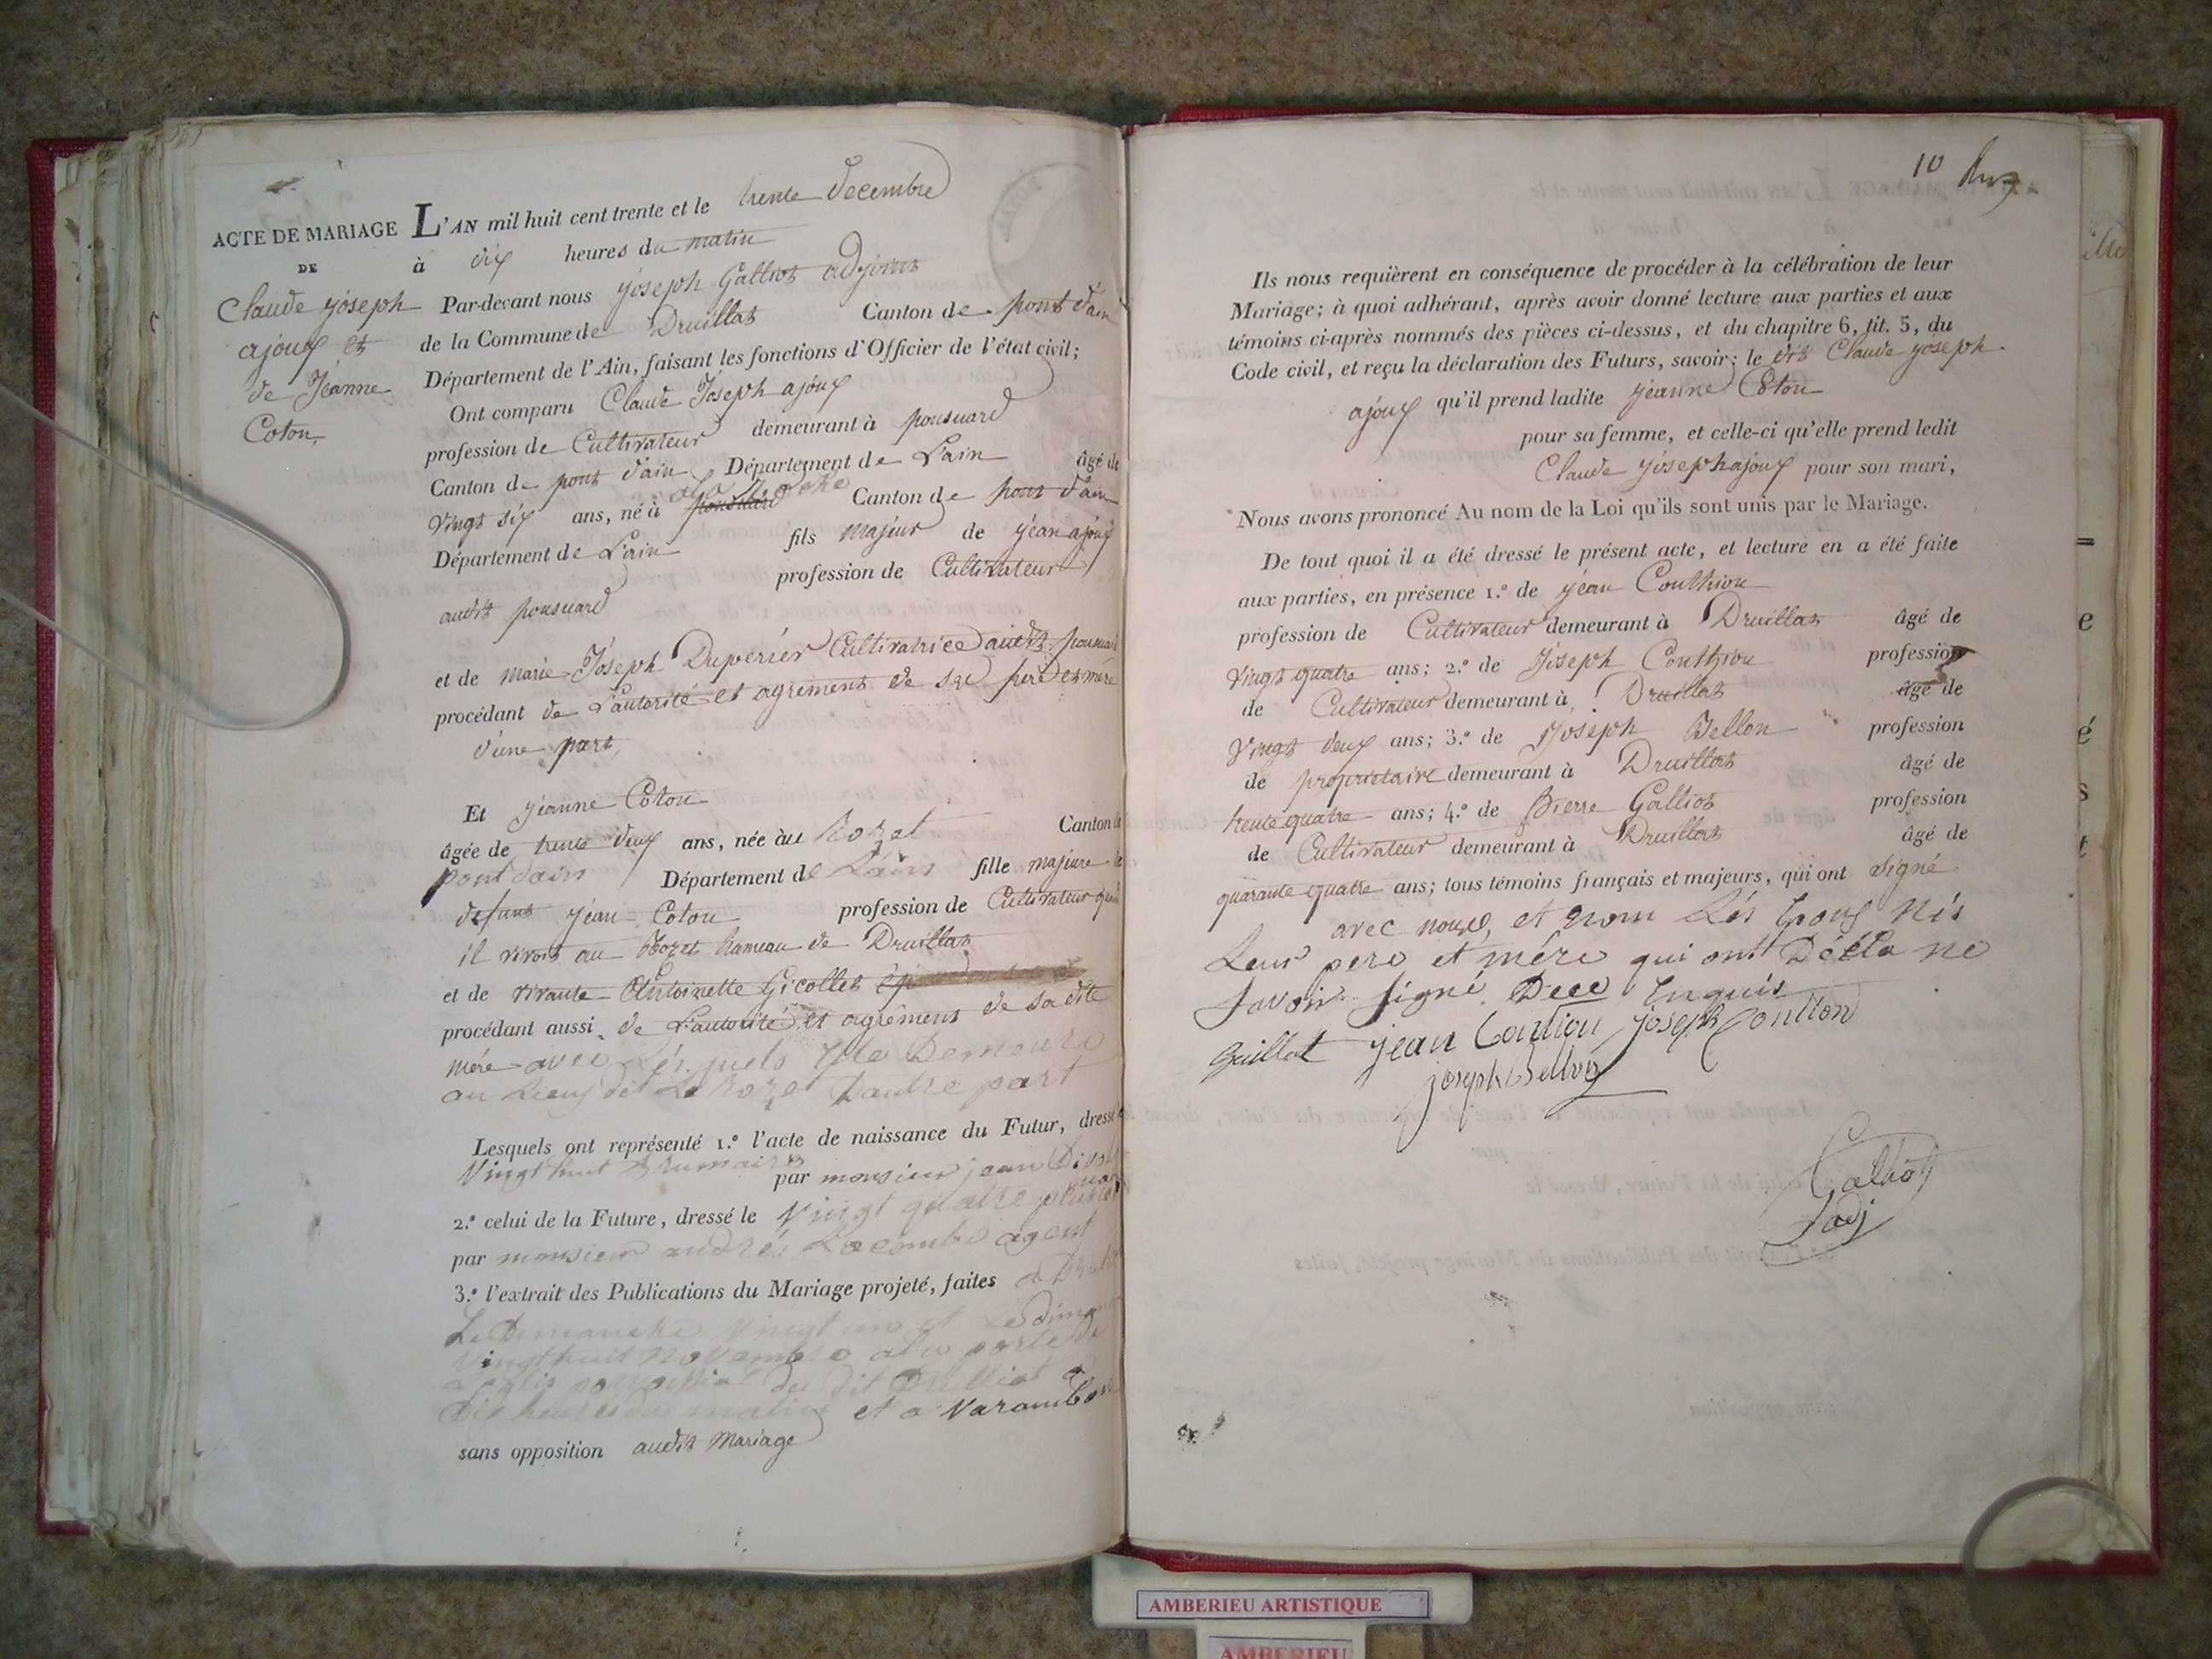 ACTE DE MARIAGE
DE
Claude joseph
ajoux et
de Jeanne
Coton,
L'AN mil huit cent trente et le trente decembre
à dix heures du matin
Par-devant nous joseph Galliot adjoint
de la Commune de Druillat Canton de pont d'ain
Département de l'Ain, faisant les fonctions d'Officier de l'état civil;
Ont comparu Claude Joseph ajoux
profession de Cultivateur demeurant à ponsuard
Canton de pont d'ain Département de L'ain âgé de
vingt six ans, né à ponsuard Canton de pont d'ain
Département de L'ain fils majeur de jean ajoux
profession de Cultivateur
audit ponsuard
et de marie Joseph Duperier Cultivatrice audit ponsuard
procédant de L'autorité et agrement de ses père et mère
d'une part,
Et jeanne Coton
âgée de trente deux ans, née au Rozet Canton de
pont dain Département de L'ain fille majeure de
defunt jean Coton profession de Cultivateur quand
il vivoit au Rozet hameau de Druillat
et de vivante Antoinette Gicollet
procédant aussi de L'autorité et agrément de sa dite
mére avec Les quels Elle Demeure
au Lieux dit Le Rozet Dautre part
Lesquels ont représenté 1.º l'acte de naissance du Futur, dressé
Vingt huit Brumaire par monsieur jean
2.º celui de la Future, dressé le Vingt quatre
par monsieur andrés Lacombe agent
3.º l'extrait des Publications du Mariage projeté, faites a
Le Dimanche Vingt un et Le dimanche
vingt huit novembre a la porte de
du dit Druillat a
Dix heures du matin et a Varambon
sans opposition audit Mariage
10
Ils nous requièrent en conséquence de procéder à la célébration de leur
Mariage; à quoi adhérant, après avoir donné lecture aux parties et aux
témoins ci-après nommés des pièces ci-dessus, et du chapitre 6, tit. 5, du
Code civil, et reçu la déclaration des Futurs, savoir: le dit Claude joseph
ajoux qu'il prend ladite jeanne Coton
pour sa femme, et celle-ci qu'elle prend ledit
Claude joseph ajoux pour son mari,
Nous avons prononcé Au nom de la Loi qu'ils sont unis par le Mariage.
De tout quoi il a été dressé le présent acte, et lecture en a été faite
aux parties, en présence 1.º de jean Conthion
profession de Cultivateur demeurant à Druillat âgé de
vingt quatre ans; 2.º de Joseph Conthion profession
de Cultivateur demeurant à Druillat âgé de
Vingt deux ans; 3.º de Joseph Bellon profession
de propriétaire demeurant à Druillat âgé de
trente quatre ans; 4.º de Pierre Galliot profession
de Cultivateur demeurant à Druillat âgé de
quarante quatre ans; tous témoins français et majeurs, qui ont signé
avec nous, et nom Les
Leur pere et mére qui ont ne
Savoir signé
guillot jean Contion joseph Contion
joseph Bellon
Galliot
adj
AMBERIEU ARTISTIQUE
AMBERIEU